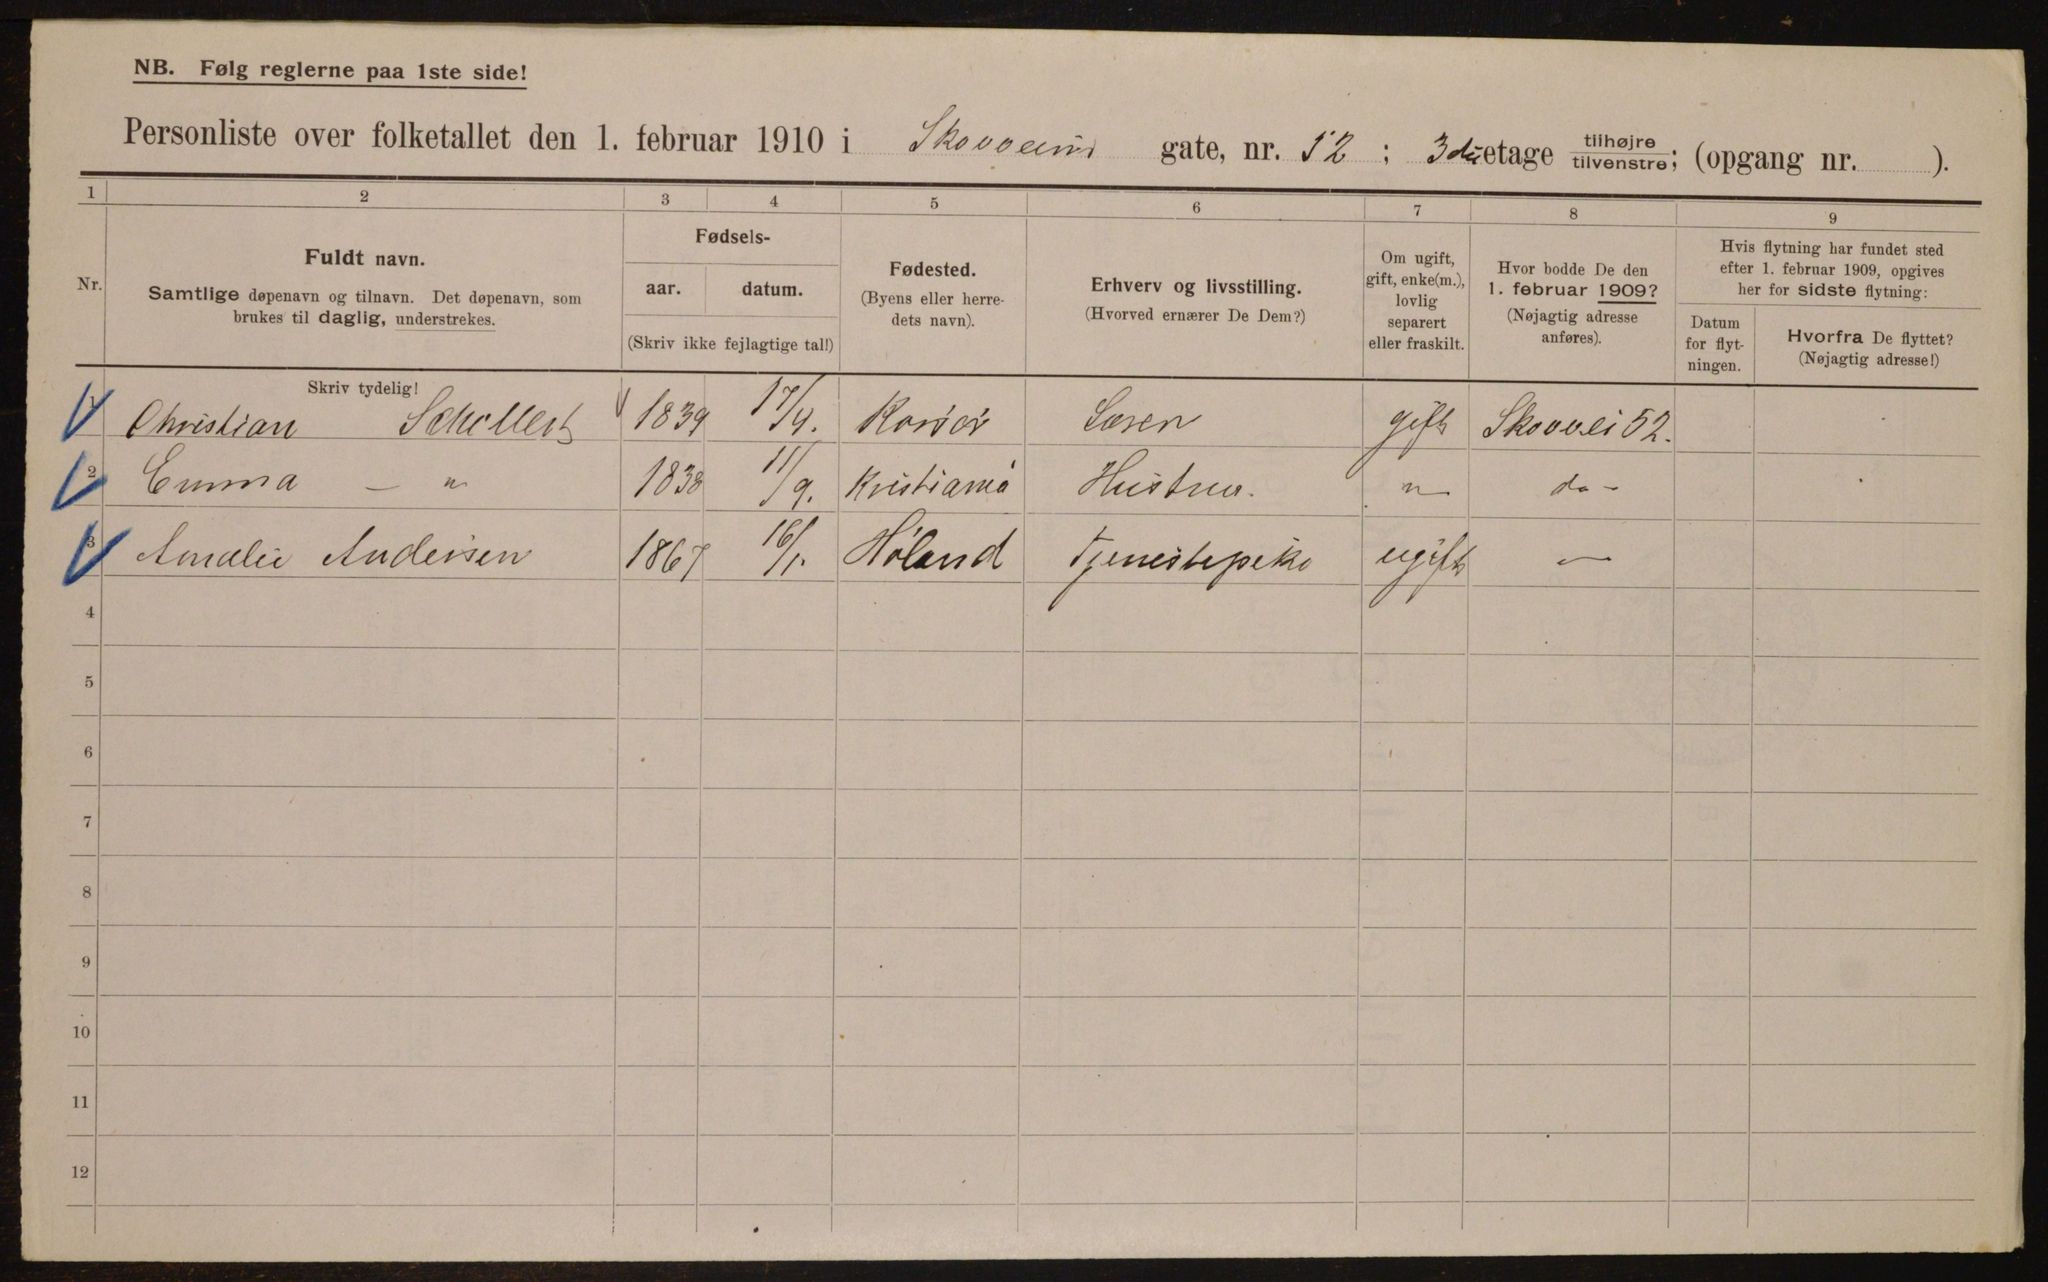 NB. Følg reglerne paa 1ste side!
Personliste over folketallet den 1. februar 1910 i Skovveien gate, nr. 52 ; 3die etage tilhøjre tilvenstre; (opgang nr. ).
1 2 3 4 5 6 7 8 9
Nr.
Fuldt navn.
Samtlige døpenavn og tilnavn. Det døpenavn, som
brukes til daglig, understrekes.
Fødsels-
aar. datum.
(Skriv ikke fejlagtige tal!)
Fødested.
(Byens eller herre-
dets navn).
Erhverv og livsstilling.
(Hvorved ernærer De Dem?)
Om ugift,
gift, enke(m.),
lovlig
separert
eller fraskilt.
Hvor bodde De den
1. februar 1909?
(Nøjagtig adresse
anføres).
Hvis flytning har fundet sted
efter 1. februar 1909, opgives
her for sidste flytning:
Datum
for flyt-
ningen.
Hvorfra De flyttet?
(Nøjagtig adresse!)
Skriv tydelig!
Christian 1839 17/4. Korsör gift Skovvei 52.
2 Emma — " 1838 11/9. Kristiania Hustru. " do -
3 Amalie Andersen 1867 16/1. Höland Tjenestepike ugift —
4
5
6
7
8
9
10
11
12